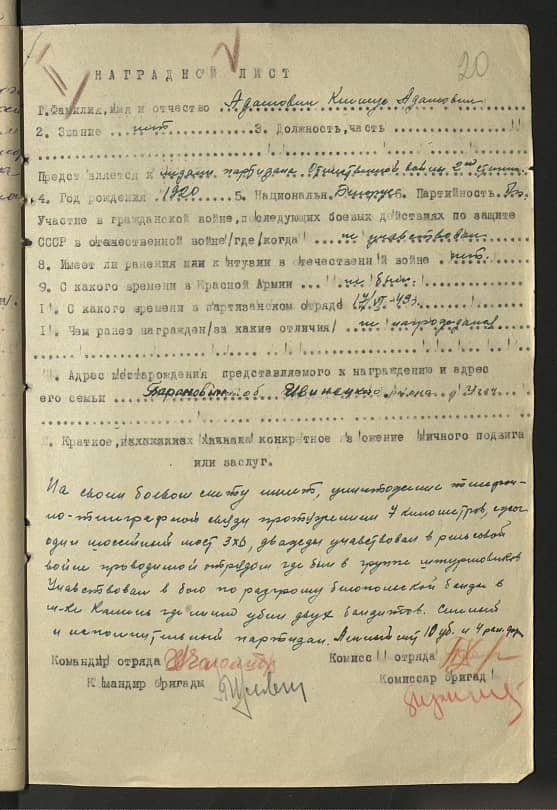 20
НАГРАДНОЙ ЛИСТ
1. Фамилия, имя и отчество Адамович Адамович
2. Звание нет 3. Должность, часть
Представляется к медали партизана Отечественной войны 2ой степени
4. Год рождения 1920 5. Национальн. Белорус 6. Партийность
Участие в гражданской войне, последующих боевых действиях по защите
СССР в отечественной войне/где/когда не участвовал
8. Имеет ли ранения или контузии в отечественной войне нет.
9. С какого времени в Красной Армии не был.
10. С какого времени в партизанском отряде
11. Чем ранее награжден/за какие отличия/ не награждался
Адрес места рождения представляемого к награждению и адрес
его семьи обл. Ивинецкого района д.
Краткое, конкретное изложение личного подвига
или заслуг.
На своем боевом счету имеет, уничтожение телефон-
но-телеграфной связи протяжением 7 километров,
один шоссейный мост дважды участвовал в рельсовой
войне проводимой отрядом где был в группе штурмовиков
Участвовал в бою по разгрому белопольской банды в
м-ке Камень где лично убил двух бандитов. Смелый
и исполнительный партизан. 10 уб. и 4 ран.
Командир отряда Комиссар отряда
Командир бригады Комиссар бригады